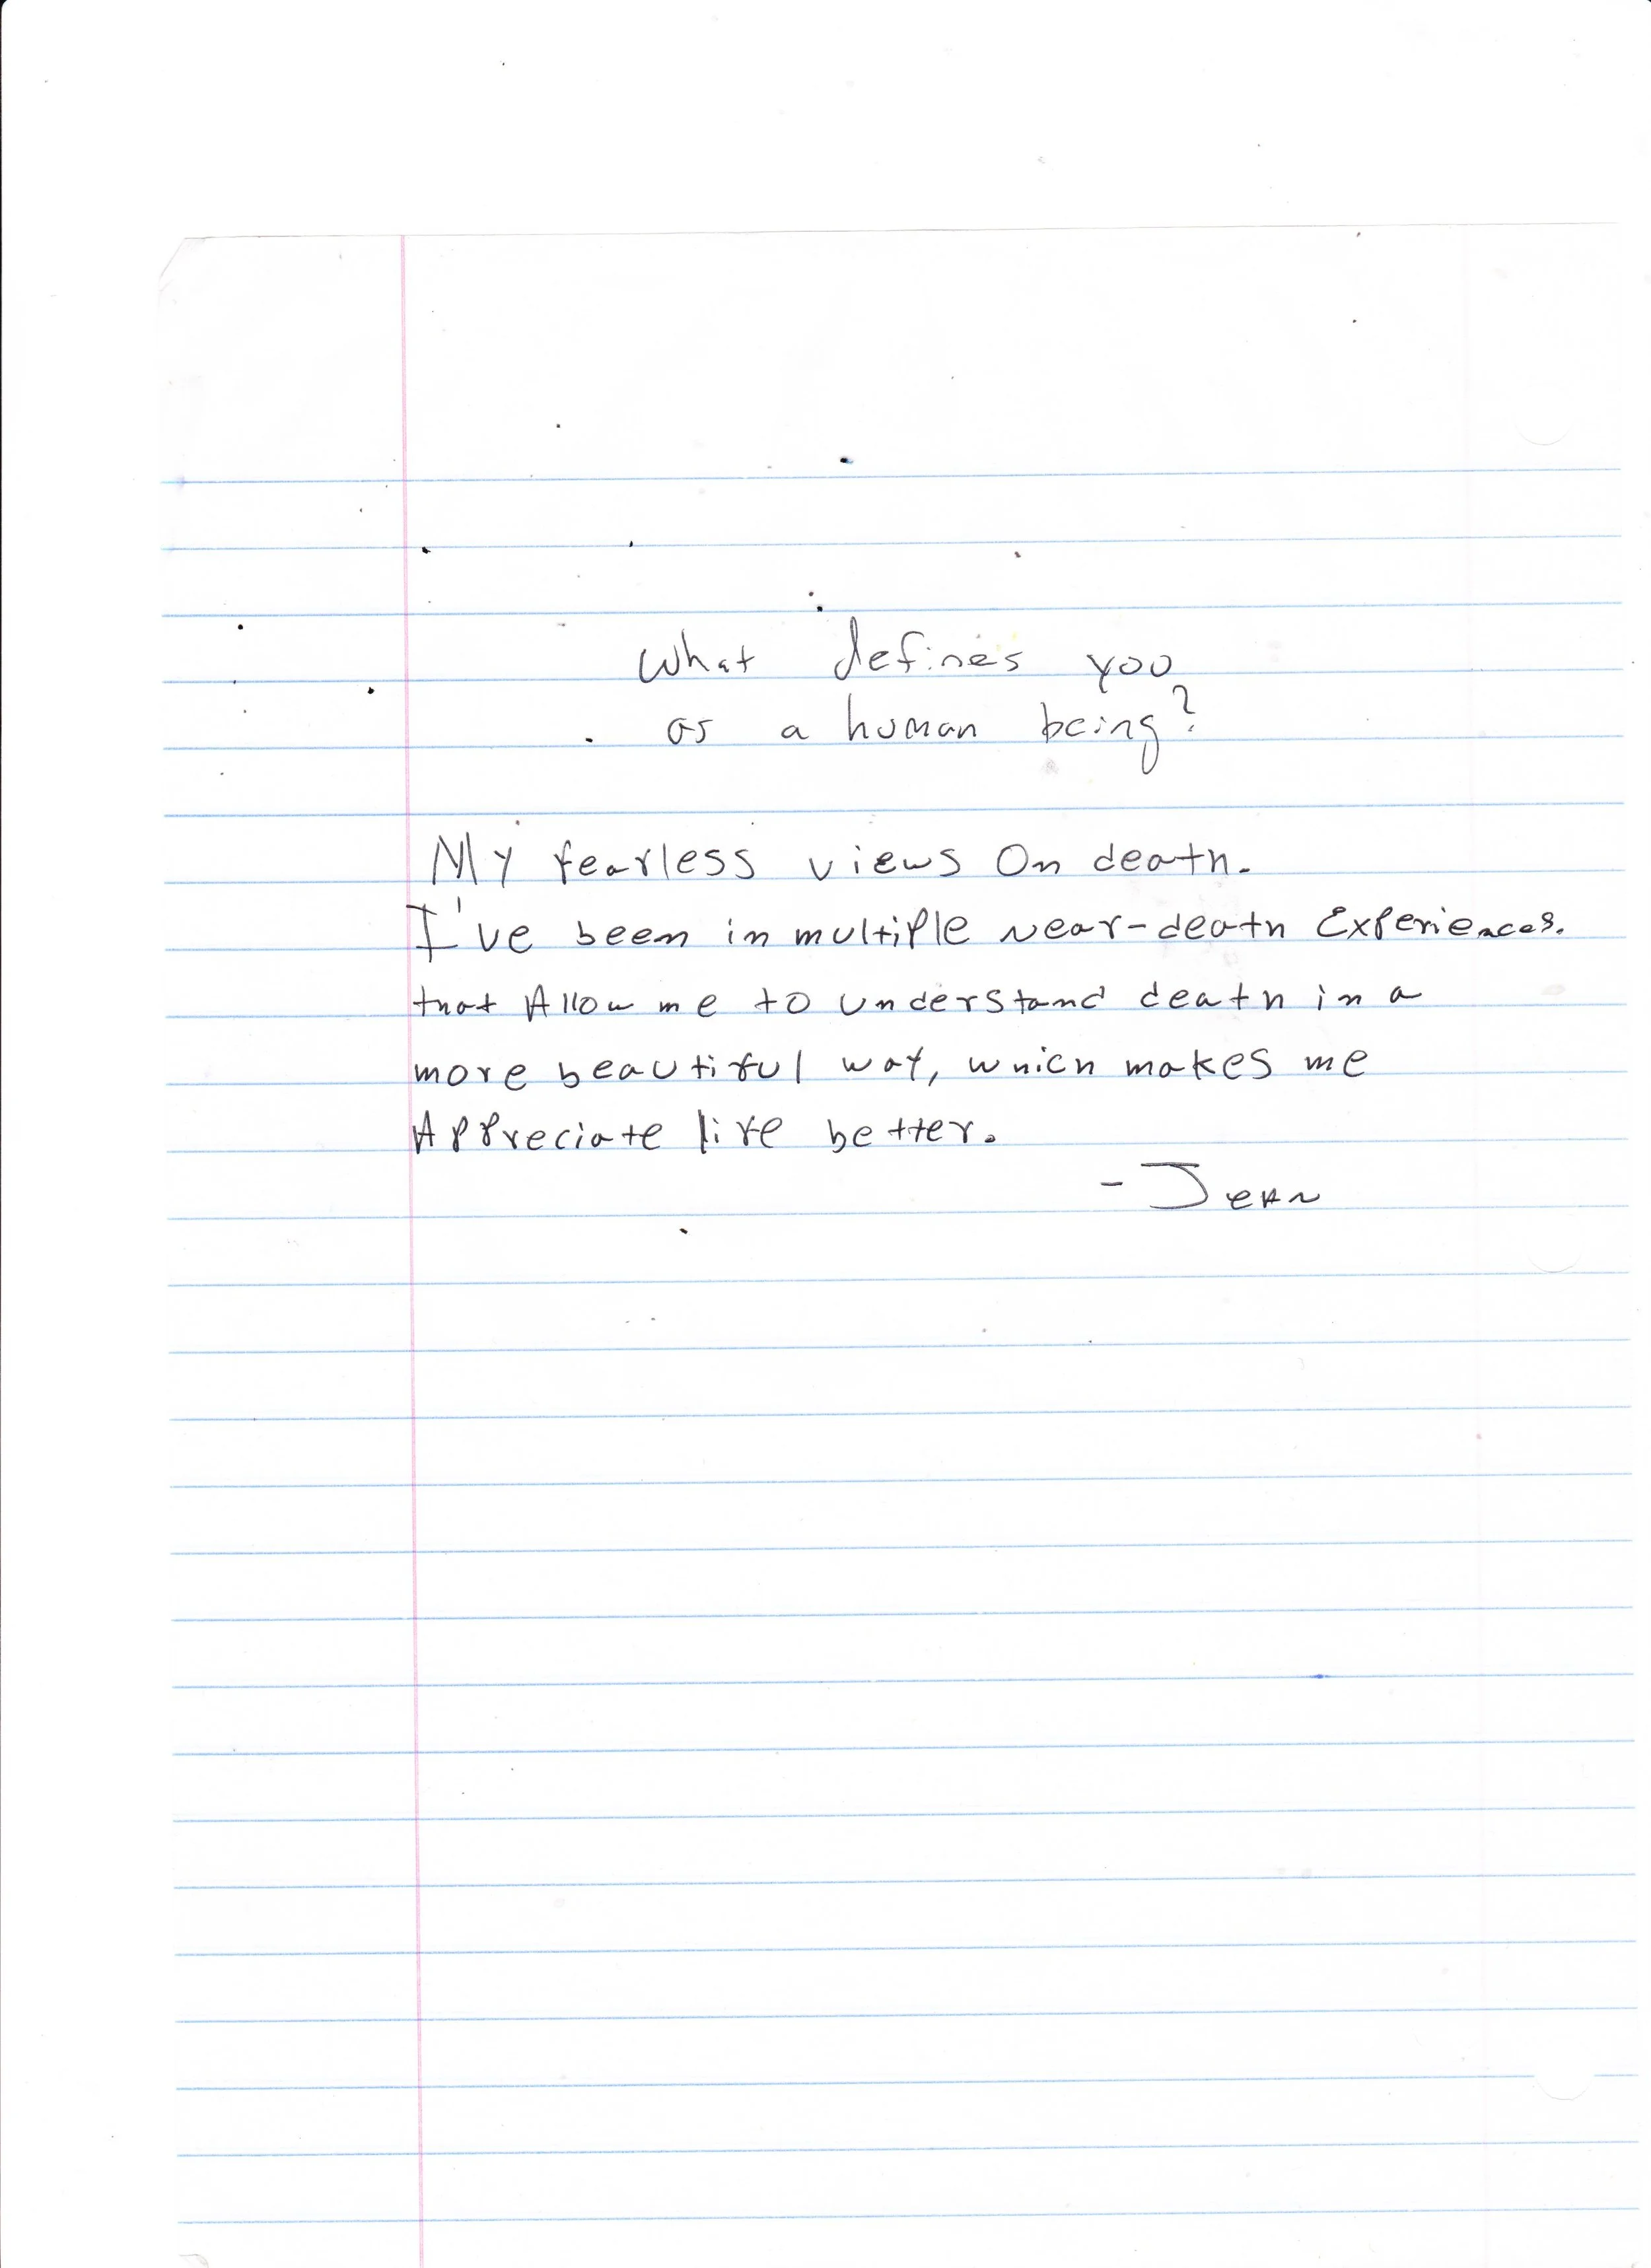 What defines you
as a human being?
My fearless views On death.
I've been in multiple near-death Experiences.
that Allow me to understand death in a
more beautiful way, which makes me
Appreciate life better.
-Jean